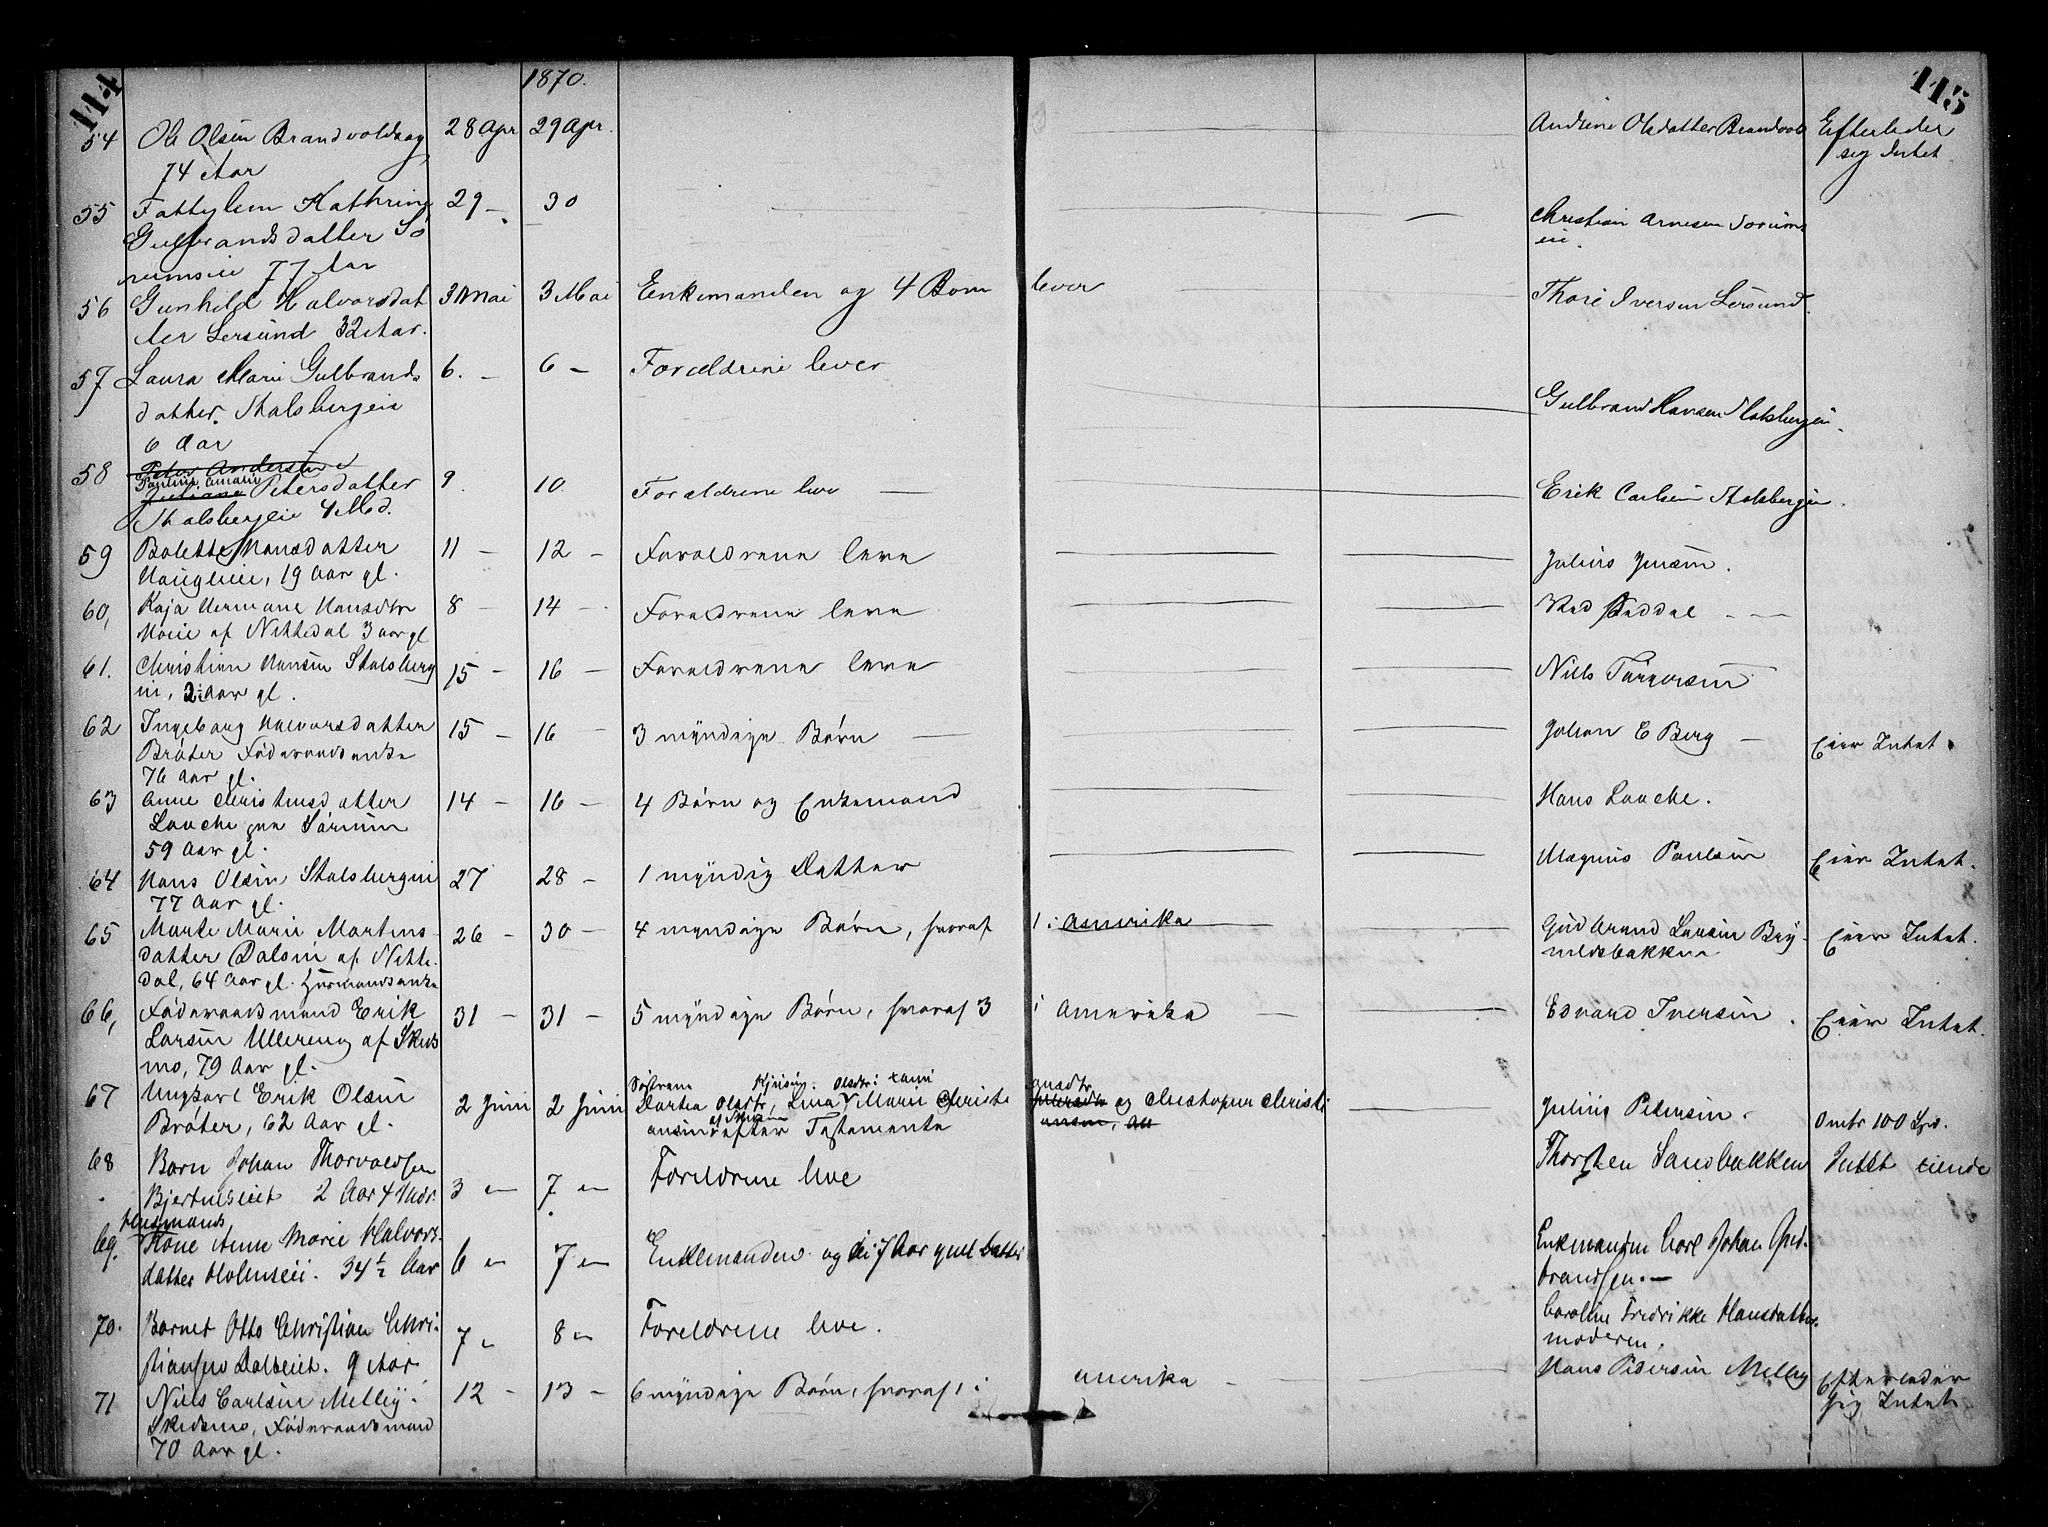 114
1870.
115
54 Ole Olsen Brandvoldeog 28 Apr 29 Apr. Andrine Olsdatter Brandvold Efterleder
74 Aar sig Intet
55 Fattiglem Kathrine 29 – 30 Christian Arnesen Sorums
Gulbrandsdatter So eie.
rumseie 77 Aar
56 Gunhild Halvorsdat 3 Mai 3 Mai Enkemanden og 4 Born lever Thore Iversen Lersund.
ter Lersund 32 Aar.
57 Laura Marie Gulbrands 6. – 6 – Forældrene lever Gulbrand Hansen Stalsbergeie.
datter. Stalsbergeie
6 Aar
58 Peter Andersen 9. 10. Forældrene leve — Erik Carlsen Stalsbergeie.
Pauline Amalie
Juliane Petersdatter
Stalsbergeie 4 Md.
59 Bolette Hansdatter 11 – 12 – Forældrene leve Julius Jensen.
Haugeneie, 19 Aar gl.
60, Kaja Hermane Hansdtr 8 – 14 – Forældrene leve
Moeie af Nittedal 3 aar gl
61. Christian Hansen Stalsberg 15 – 16 – Forældrene leve Niels Torgersen
eie, 2 Aar gl.
62 Ingeborg Halvorsdatter 15 – 16 – 3 myndige Børn — Johan E Berg — Eier Intet.
Bråter Føderaadsenke
76 Aar gl.
63 Anne Christensdatter 14 – 16 – 4 Børn og Enkemand Hans Laache.
Laache Sørum
59 Aar gl.
64 Hans Olsen Stalsbergeie 27 28 – 1 myndig Datter Magnus Paulsen Eier Intet.
77 Aar gl.
65 Marte Marie Martins- 26 – 30 – 4 myndige Børn, hvoraf 1 i Amerika Gudbrand Larsen Bry- Eier Intet.
datter Dalseie af Nitte- nildsbakken
dal, 64 Aar gl. Husmandsenke
66, Føderaadsmand Erik 31 – 31 – 5 myndige Børn, hvoraf 3 i Amerika — Edvard Iversen. Eier Intet.
Larsen Ullereng af Skeds
mo, 79 Aar gl.
67 Ungkarl Erik Olsen 2 Juni 2 Juni Søstrene Dortea Olsdtr, Lina Marie Christi og Christopher Christi Julius Petersen. Omtr 100 Spd.
Bråter, 62 Aar gl. ansen efter Testamente ansen,
68 Barn Johan Thorvaldsen 3 " – 7 " – Foreldrene leve Thorsten Sandbakken Intet eiende
Bjertneseiet 2 Aar 4 Mdr.
Husmands
69. Kone Anne Marie Halvors- 6 " 7 " – Enkemanden og 7 Aar gml Datter Enkmanden Carl Johan Gud-
datter Holmseie. 34½ Aar brandsen. —
70. Barnet Otto Christian Chri- 7 " 8 " – Foreldrene leve. Caroline Fredrikke Hansdatter
stiansen Dalbeiet. 9 Aar moderen.
71 Niels Carlsen Melby. 12 – 13 – 6 myndige Børn, hvoraf 1 i Amerika – Hans Pedersen Melby Efterleder
Skedsmo, Føderaadsmand sig Intet
70 Aar gl.